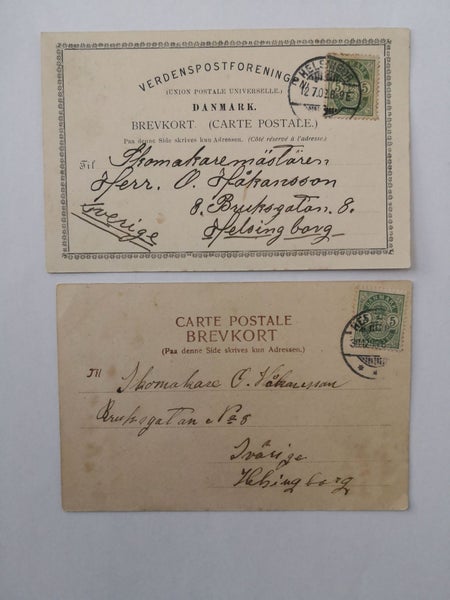 VERDENSPOSTFORENINGEN
(UNION POSTALE UNIVERSELLE.)
DANMARK.
BREVKORT. (CARTE POSTALE.)
Paa denne Side skrives kun Adressen. (Côté réservé à l'adresse.)
Til Skomakaremästaren
Herr. O. Håkansson
8. Bruksgatan. 8.
Helsingborg
Sverige
5
CARTE POSTALE
BREVKORT
(Paa denne Side skrives kun Adressen.)
5
Til Skomakare O. Håkansson
Bruksgatan No 8
Svärige
Helsingborg